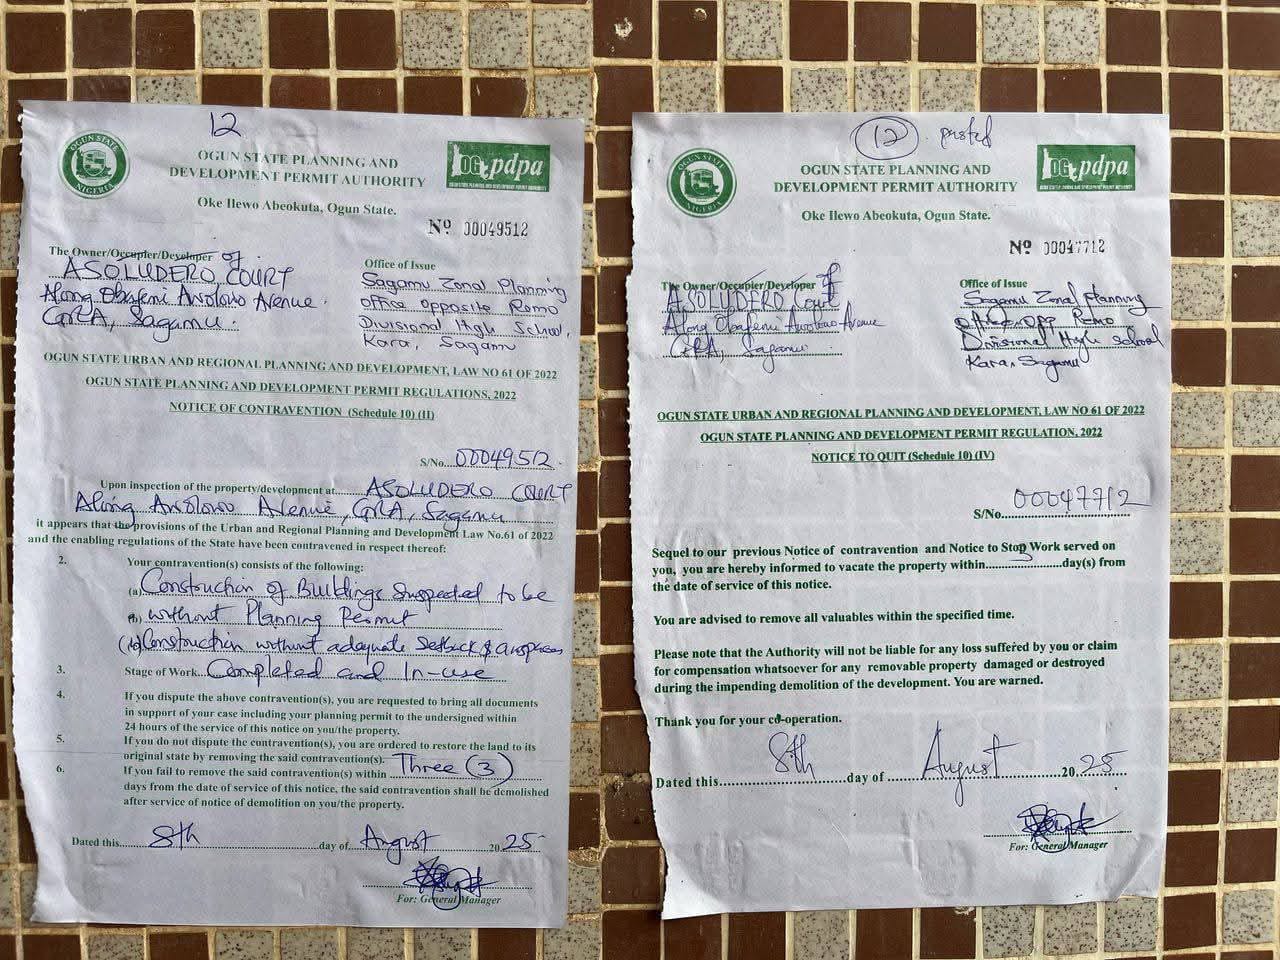 12
OGUN STATE
NIGERIA
OGUN STATE PLANNING AND
DEVELOPMENT PERMIT AUTHORITY
Oke Ilewo Abeokuta, Ogun State.
OG pdpa
OGUN STATE PLANNING AND DEVELOPMENT PERMIT AUTHORITY
Nº 00049512
The Owner/Occupier/Developer of
ASOLUDERO COURT
Along Obafemi Awolowo Avenue.
GRA, Sagamu.
Office of Issue
Sagamu Zonal Planning
office opposite Remo
Divisional High School,
Kara, Sagamu
OGUN STATE URBAN AND REGIONAL PLANNING AND DEVELOPMENT, LAW NO 61 OF 2022
OGUN STATE PLANNING AND DEVELOPMENT PERMIT REGULATIONS, 2022
NOTICE OF CONTRAVENTION (Schedule 10) (II)
S/No. 00049512.
Upon inspection of the property/development at ASOLUDERO COURT
Along Awolowo Avenue, GRA, Sagamu
it appears that the provisions of the Urban and Regional Planning and Development Law No.61 of 2022
and the enabling regulations of the State have been contravened in respect thereof:
2. Your contravention(s) consists of the following:
(a) Construction of Buildings Suspected to be
(b) without Planning Permit
(b) Construction without adequate Setback & airspaces
3. Stage of Work Completed and In-use
4. If you dispute the above contravention(s), you are requested to bring all documents
in support of your case including your planning permit to the undersigned within
24 hours of the service of this notice on you/the property.
5. If you do not dispute the contravention(s), you are ordered to restore the land to its
original state by removing the said contravention(s).
6. If you fail to remove the said contravention(s) within Three (3)
days from the date of service of this notice, the said contravention shall be demolished
after service of notice of demolition on you/the property.
Dated this 8th day of August 2025
For: General Manager
12 . pasted
OGUN STATE
NIGERIA
OGUN STATE PLANNING AND
DEVELOPMENT PERMIT AUTHORITY
Oke Ilewo Abeokuta, Ogun State.
OG pdpa
OGUN STATE PLANNING AND DEVELOPMENT PERMIT AUTHORITY
Nº 00047712
The Owner/Occupier/Developer of
ASOLUDERO Court
Along Obafemi Awolowo Avenue
GRA, Sagamu
Office of Issue
Sagamu Zonal Planning
office opp Remo
Divisional High School
Kara, Sagamu
OGUN STATE URBAN AND REGIONAL PLANNING AND DEVELOPMENT, LAW NO 61 OF 2022
OGUN STATE PLANNING AND DEVELOPMENT PERMIT REGULATION, 2022
NOTICE TO QUIT (Schedule 10) (IV)
S/No. 00047712
Sequel to our previous Notice of contravention and Notice to Stop Work served on
you, you are hereby informed to vacate the property within day(s) from
the date of service of this notice.
You are advised to remove all valuables within the specified time.
Please note that the Authority will not be liable for any loss suffered by you or claim
for compensation whatsoever for any removable property damaged or destroyed
during the impending demolition of the development. You are warned.
Thank you for your co-operation.
Dated this 8th day of August 2025
For: General Manager